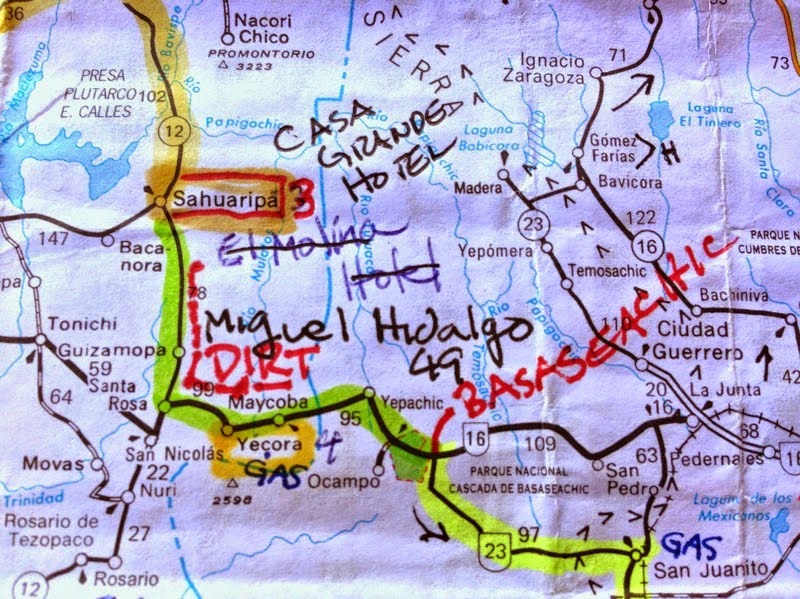 36
Nacori
Chico
PROMONTORIO
△ 3223
SIERRA
Ignacio
Zaragoza
71
73
Río Bavispe
Río Moctezuma
PRESA
PLUTARCO
E. CALLES
102
12
Río
Papigochic
CASA
GRANDE
HOTEL
Laguna
Babicora
Papigochic
Laguna
El Tintero
Río Santa
Clara
Gómez
Farías
H
Madera
Bavicora
Sahuaripa
3
147
Baca
nora
El Molina
Hotel
23
122
16
PARQUE N
CUMBRES DE
Yepómera
Temosachic
pa
78
Mulatos
Río
Tonichi
Miguel Hidalgo
49
Río
Papigochic
BASASEACHIC
Bachiniva
Guizamopa
59
DIRT
110
Ciudad
Guerrero
Santa
Rosa
99
Maycoba
95
Yepachic
20
La Junta
42
64
Yecora
4
16
109
16
68
San Nicolás
GAS
Ocampo
PARQUE NACIONAL
CASCADA DE BASASEACHIC
San
Pedro
63
Pedernales
16
Movas
22
Nuri
△
2598
Trinidad
Laguna de los
Mexicanos
Rosario de
Tezopaco
27
23
97
GAS
San Juanito
12
Rosario